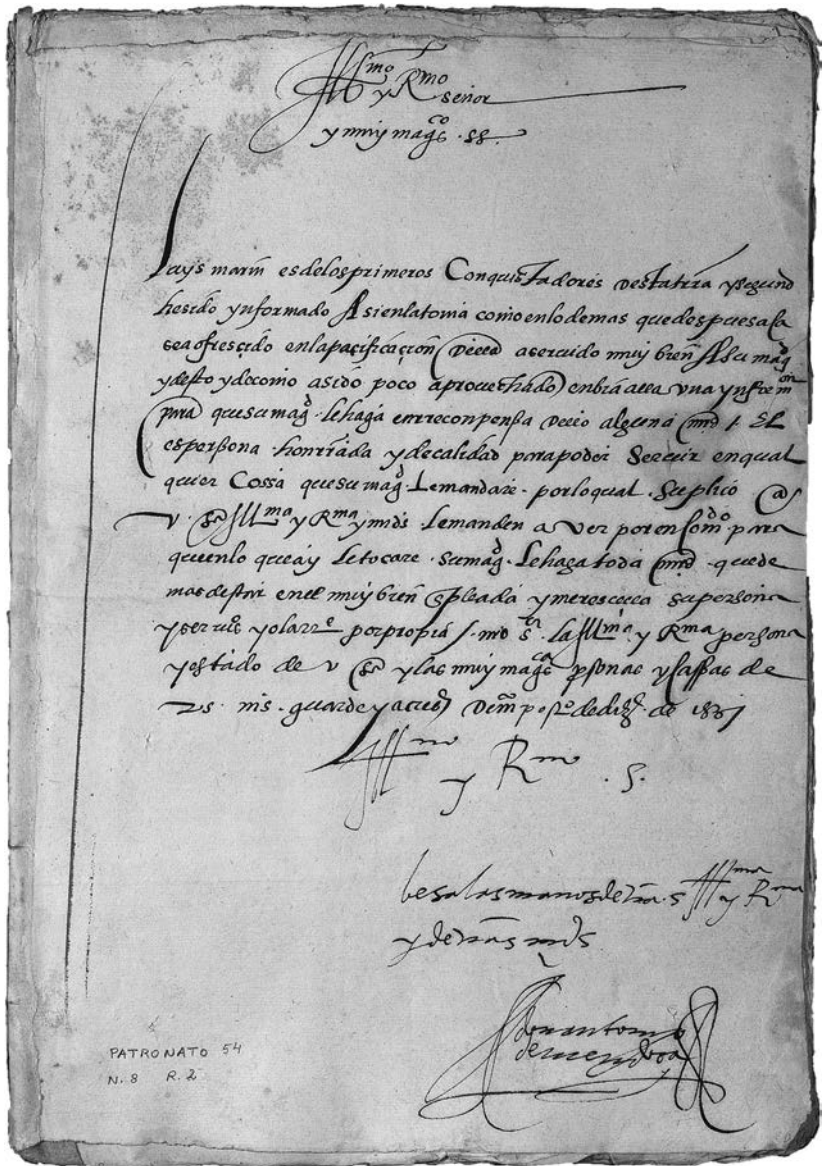 Illmo y Rmo
señor
y muy magcos . ss.
luys marin es delos primeros Conquistadores desta trra y segund
he sido ynformado Asi en la toma como en lo demas que despues aca
se a ofrescido en la pacificacion della a seruido muy bien A su magd
y desto y de como a sido poco aprouechado enbia alla vna ynfremon
para que su magd. le haga en rreconpensa dello alguna md . El
es persona honrrada y de calidad para poder Seruir en qual
quier Cossa que su magd. Le mandare. por lo qual. Suplico a
v. sa Illma y Rma y mds . Le manden a ver por encomdo para
que en lo que ay le tocare . su magd. Le haga toda md . que de
mas de star en el muy bien enpleada y meresceLLa su persona
y seruios yo la rre por propia / . nro sor . la Illma y Rma persona
y estado de v sa y las muy magcas psonas y cassas de
vs. ms . guarde y acres de mco po de dizе de 1537
Illmo y Rmo . S.
besa las manos de vra . s Illma y Rma
y de vras mds
don antonio
de mendoça
PATRONATO 54
N. 8 R. 2